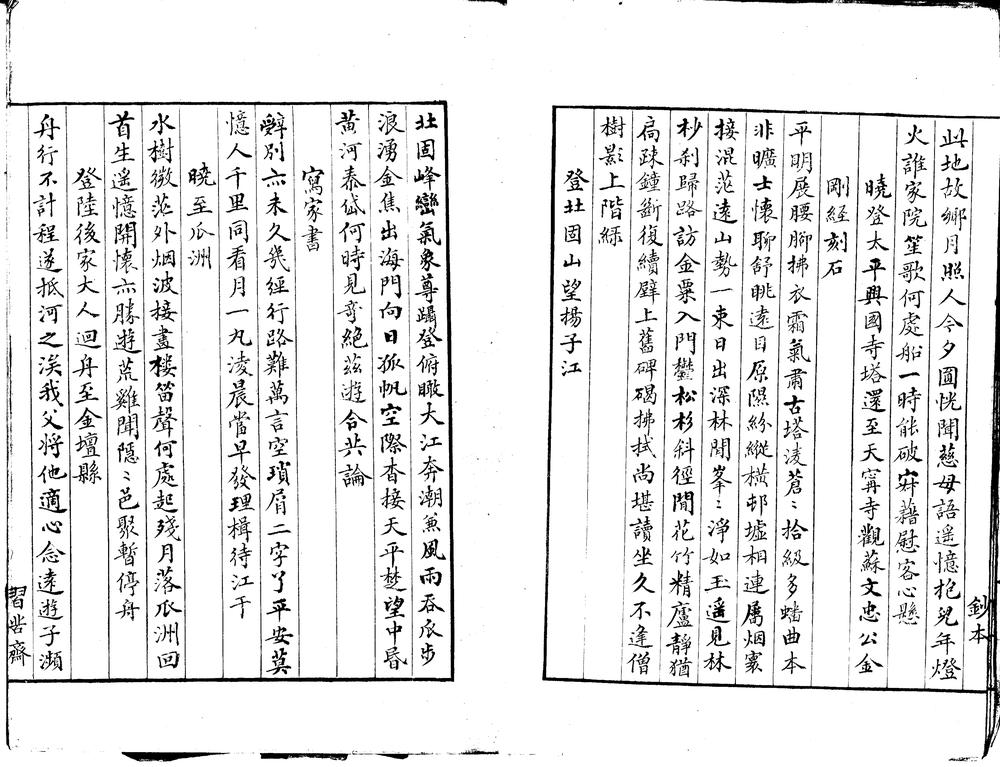 此地故鄉月照人今夕圓恍聞慈母語遥憶抱兒年燈
火誰家院笙歌何處船一時能破寂藉慰客心懸
曉登太平興國寺塔還至天寧寺觀蘇文忠公金
剛經刻石
平明展腰腳拂衣霜氣肅古塔淩蒼〻拾級多蟠曲本
非曠士懷聊舒眺遠目原隰紛縱橫邨墟相連屬烟寰
接混茫遠山勢一束日出深林間峯〻淨如玉遥見林
杪刹歸路訪金粟入門鬱松杉斜徑閒花竹精廬靜猶
扃疎鐘斷復續壁上舊碑碣拂拭尚堪讀坐久不逢僧
樹影上階綠
登北固山望揚子江
北固峰巒氣象尊躡登俯瞰大江奔潮兼風雨吞瓜步
浪湧金焦出海門向日孤帆空際杳接天平楚望中昏
黄河泰岱何時見竒絕茲遊合共論
寫家書
辤別亦未久幾經行路難萬言空瑣屑二字了平安莫
憶人千里同看月一丸淩晨當早發理楫待江干
曉至瓜洲
水樹微茫外烟波接畫樓笛聲何處起殘月落瓜洲回
首生遥憶開懷亦勝遊荒雞聞隱〻邑聚暫停舟
登陸後家大人迴舟至金壇縣
舟行不計程遂抵河之涘我父將他適心念遠遊子瀕
鈔本
習㫖齋